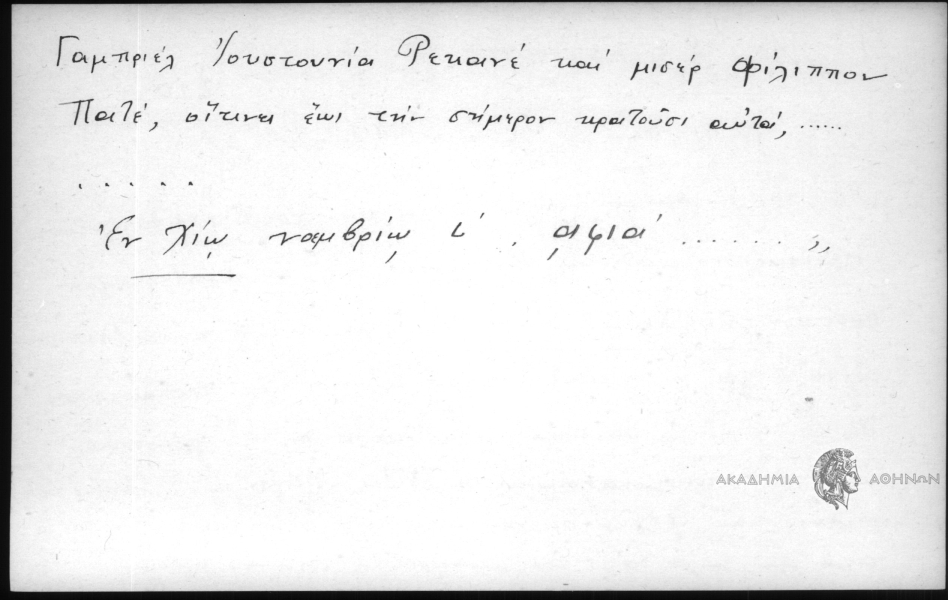 Γαμπριέλ Ἰουστουνία Ρεκανέ καί μισέρ Φίλιππον
Πατέ, οἵτινες ἕως τήν σήμερον κρατοῦσι αὐτά, ......
. . . . .
Ἐν Χίῳ ναμβρίῳ ι΄ . ͵αφια΄ ....... „
ΑΚΑΔΗΜΙΑ ΑΘΗΝΩΝ